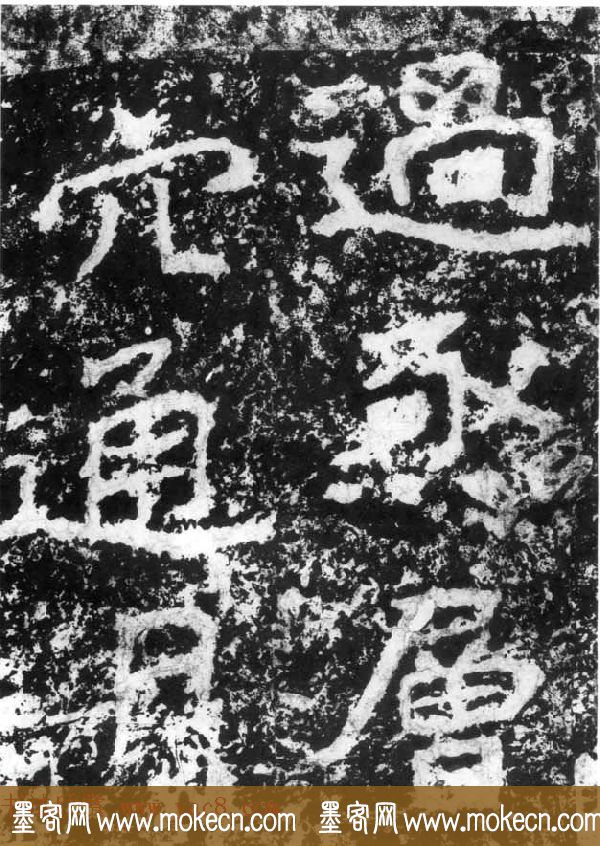 過亟層
穴通月
墨客网www.mokecn.com 墨客网www.mokecn.com